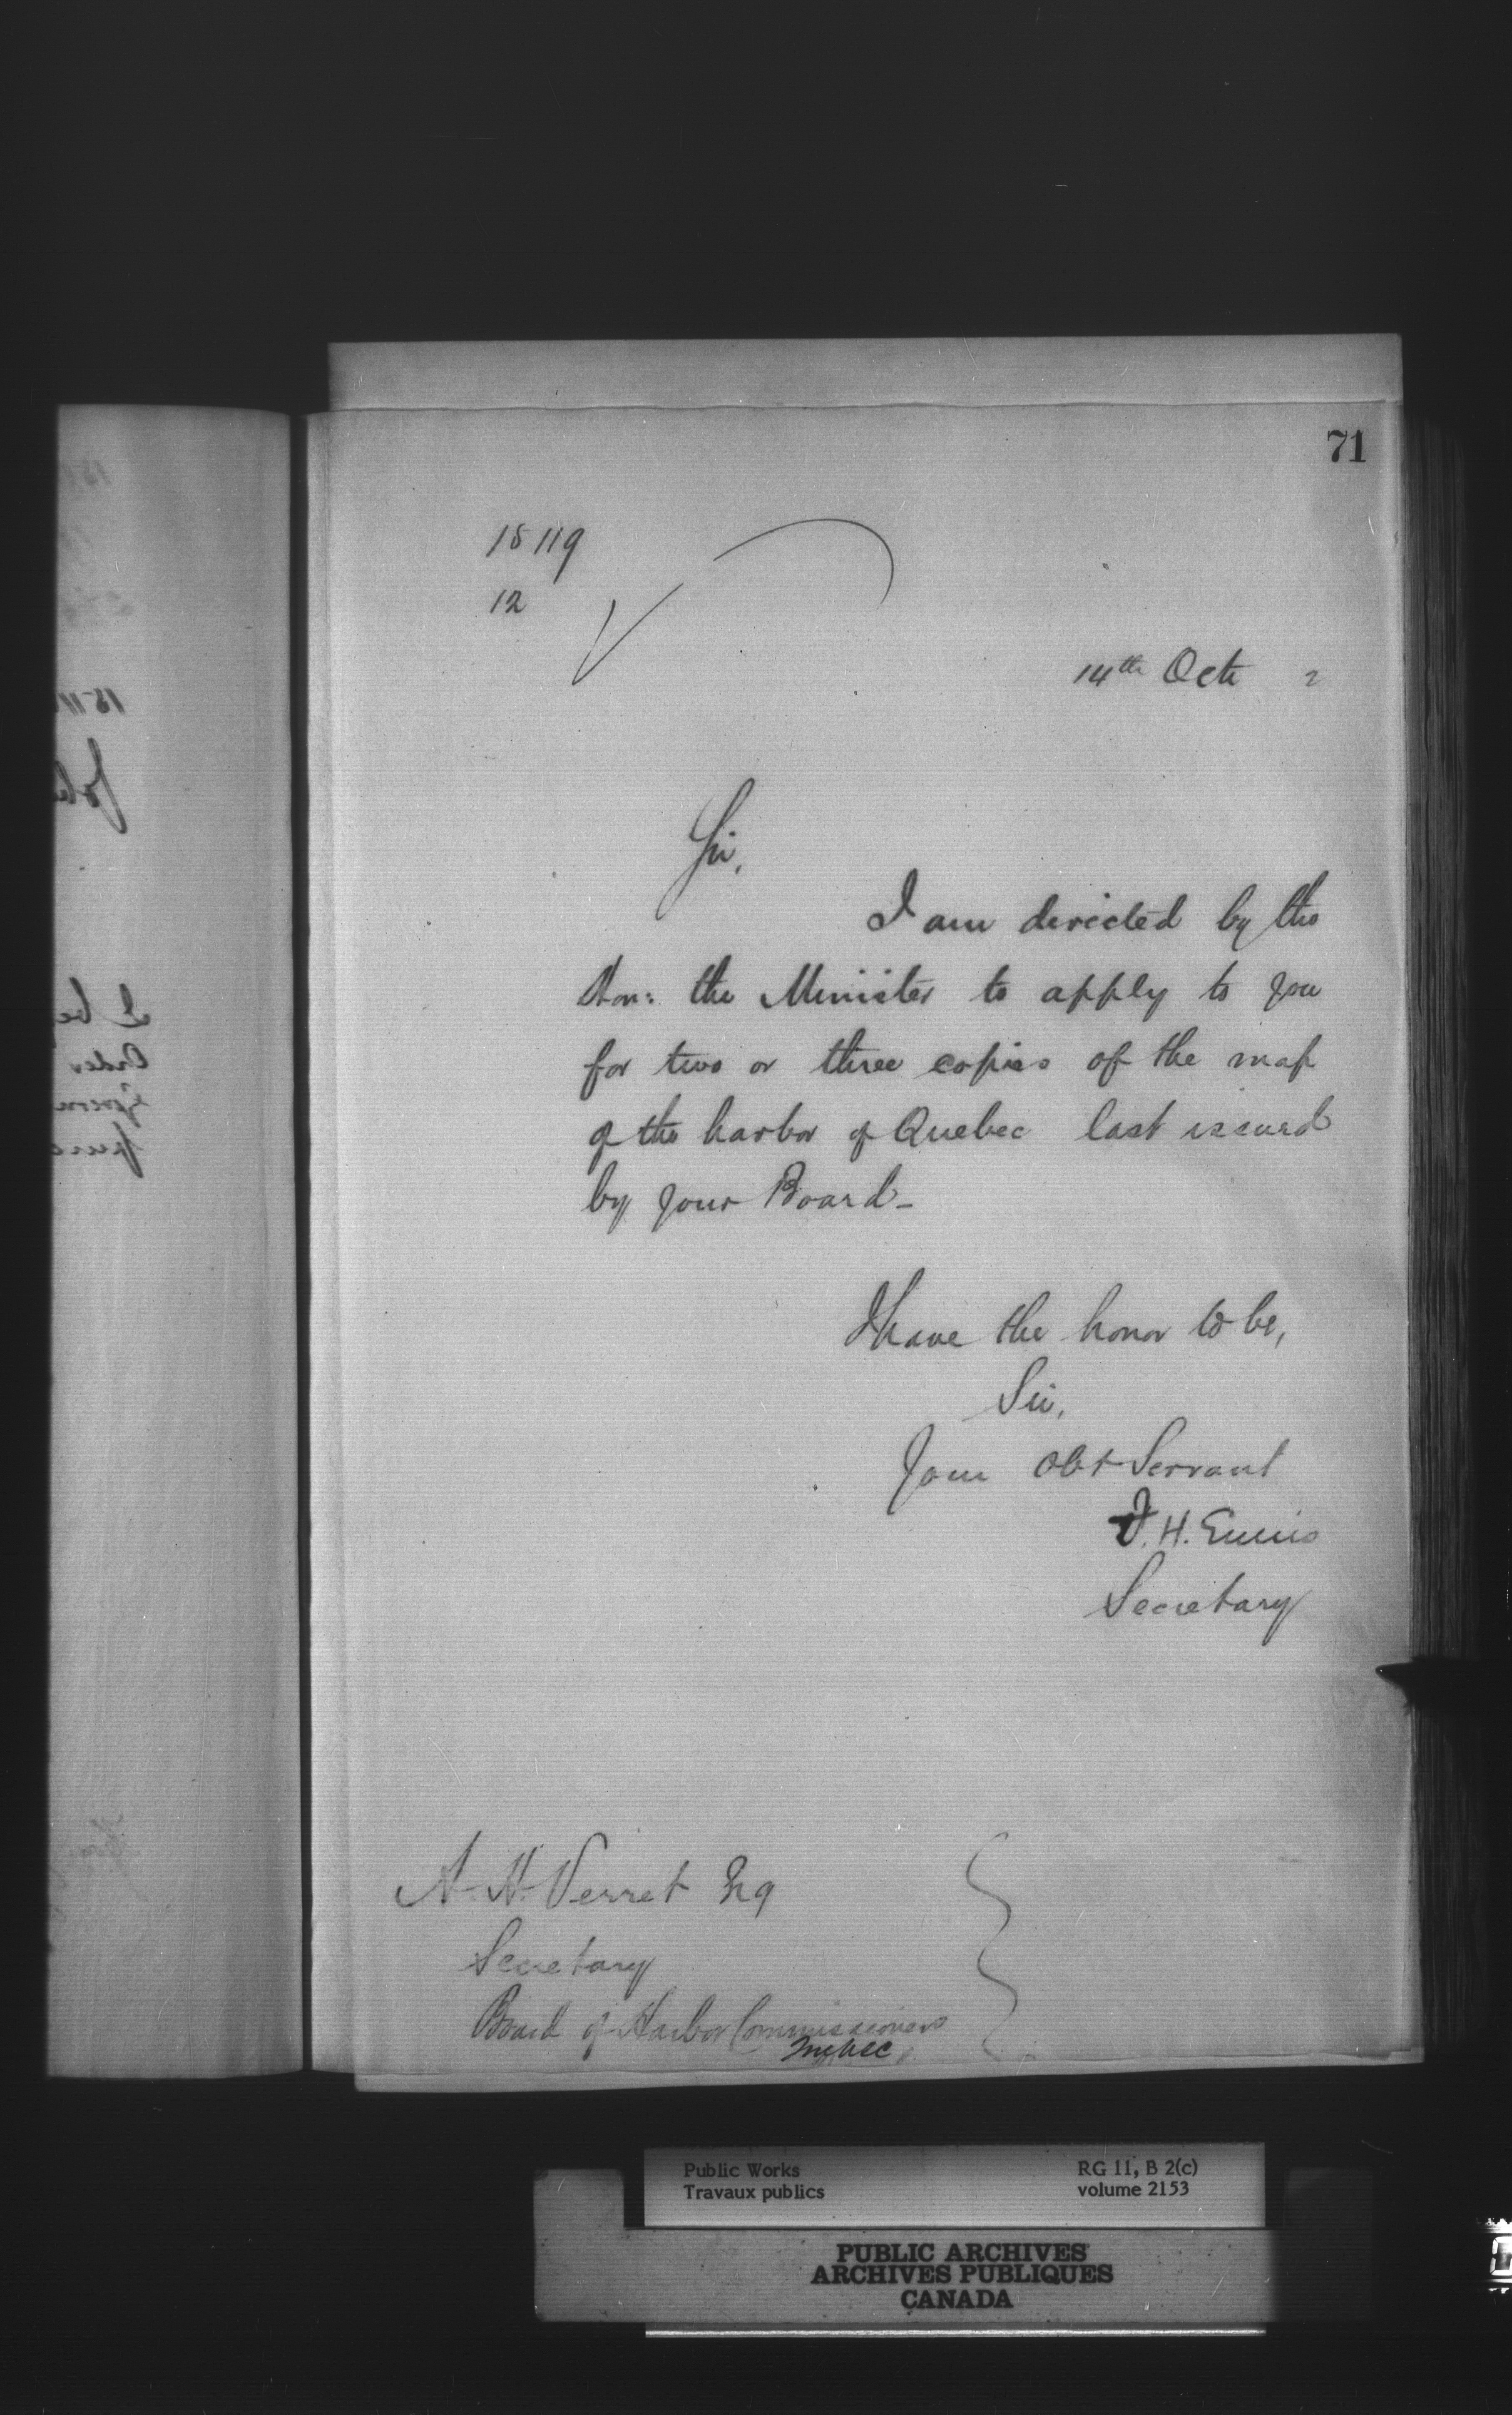 71
15119
12
14th Oct 2
Sir,
I am directed by the
Hon: the Minister to apply to you
for two or three copies of the map
of the harbor of Quebec last issued
by your Board_
I have the honor to be,
Sir,
Your Obt Servant
F. H. Ennis
Secretary
A. H. Verret Esq
Secretary
Board of Harbor Commissioners
Quebec
Public Works
Travaux publics
RG 11, B 2(c)
volume 2153
PUBLIC ARCHIVES
ARCHIVES PUBLIQUES
CANADA